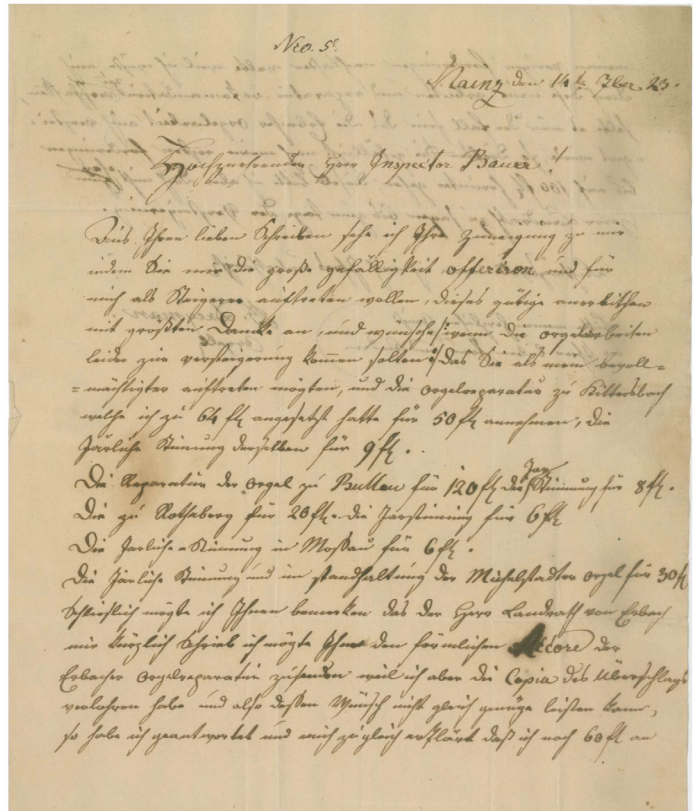 Nro. 5.
Mainz den 14t 7ber 23.
Hochzuehrender Herr Inspector Bauer!
Aus Ihren lieben Schreiben sehe ich Ihre Zuneigung zu mir
indem Sie mir die große gefälligkeit offeriren und für
mich als Steigerer auftreten wollen, dieses gütige anerbithen
mit größten Danke an, und wünsche/:wenn die orgelarbeiten
leider zur versteigerung kommen solten:/ das Sie als mein bevoll=
=mächtigter auftreten mögten, und die orgelreparatur zu Rittersbach
welche ich zu 64 fl angesetzt hatte für 50 fl annehmen, die
Järliche Stimung derselben für 9 fl.
Die Reparatur der orgel zu Bullau für 120 fl die Jar Stimmung für 8 fl.
Die zu Rotheberg für 20 fl. die Jarstimung für 6 fl
Die Jarliche Stimung in Mossau für 6 fl.
Die Järliche Stimung und in standhaltung der Michelstadter orgel für 30 fl
Schlieslich mögte ich Ihnen bemerken das der Herr Landrath von Erbach
mir kürzlich schrieb ich mögte Ihm den förmlichen Accord der
Erbacher orgelreparatur zusenden weil ich aber die Copia des Überschlags
verlohren habe und also dessen Wunsch nicht gleich genüge leisten kann,
so habe ich geantwortet und mich zugleich erklärt daß ich noch 60 fl an